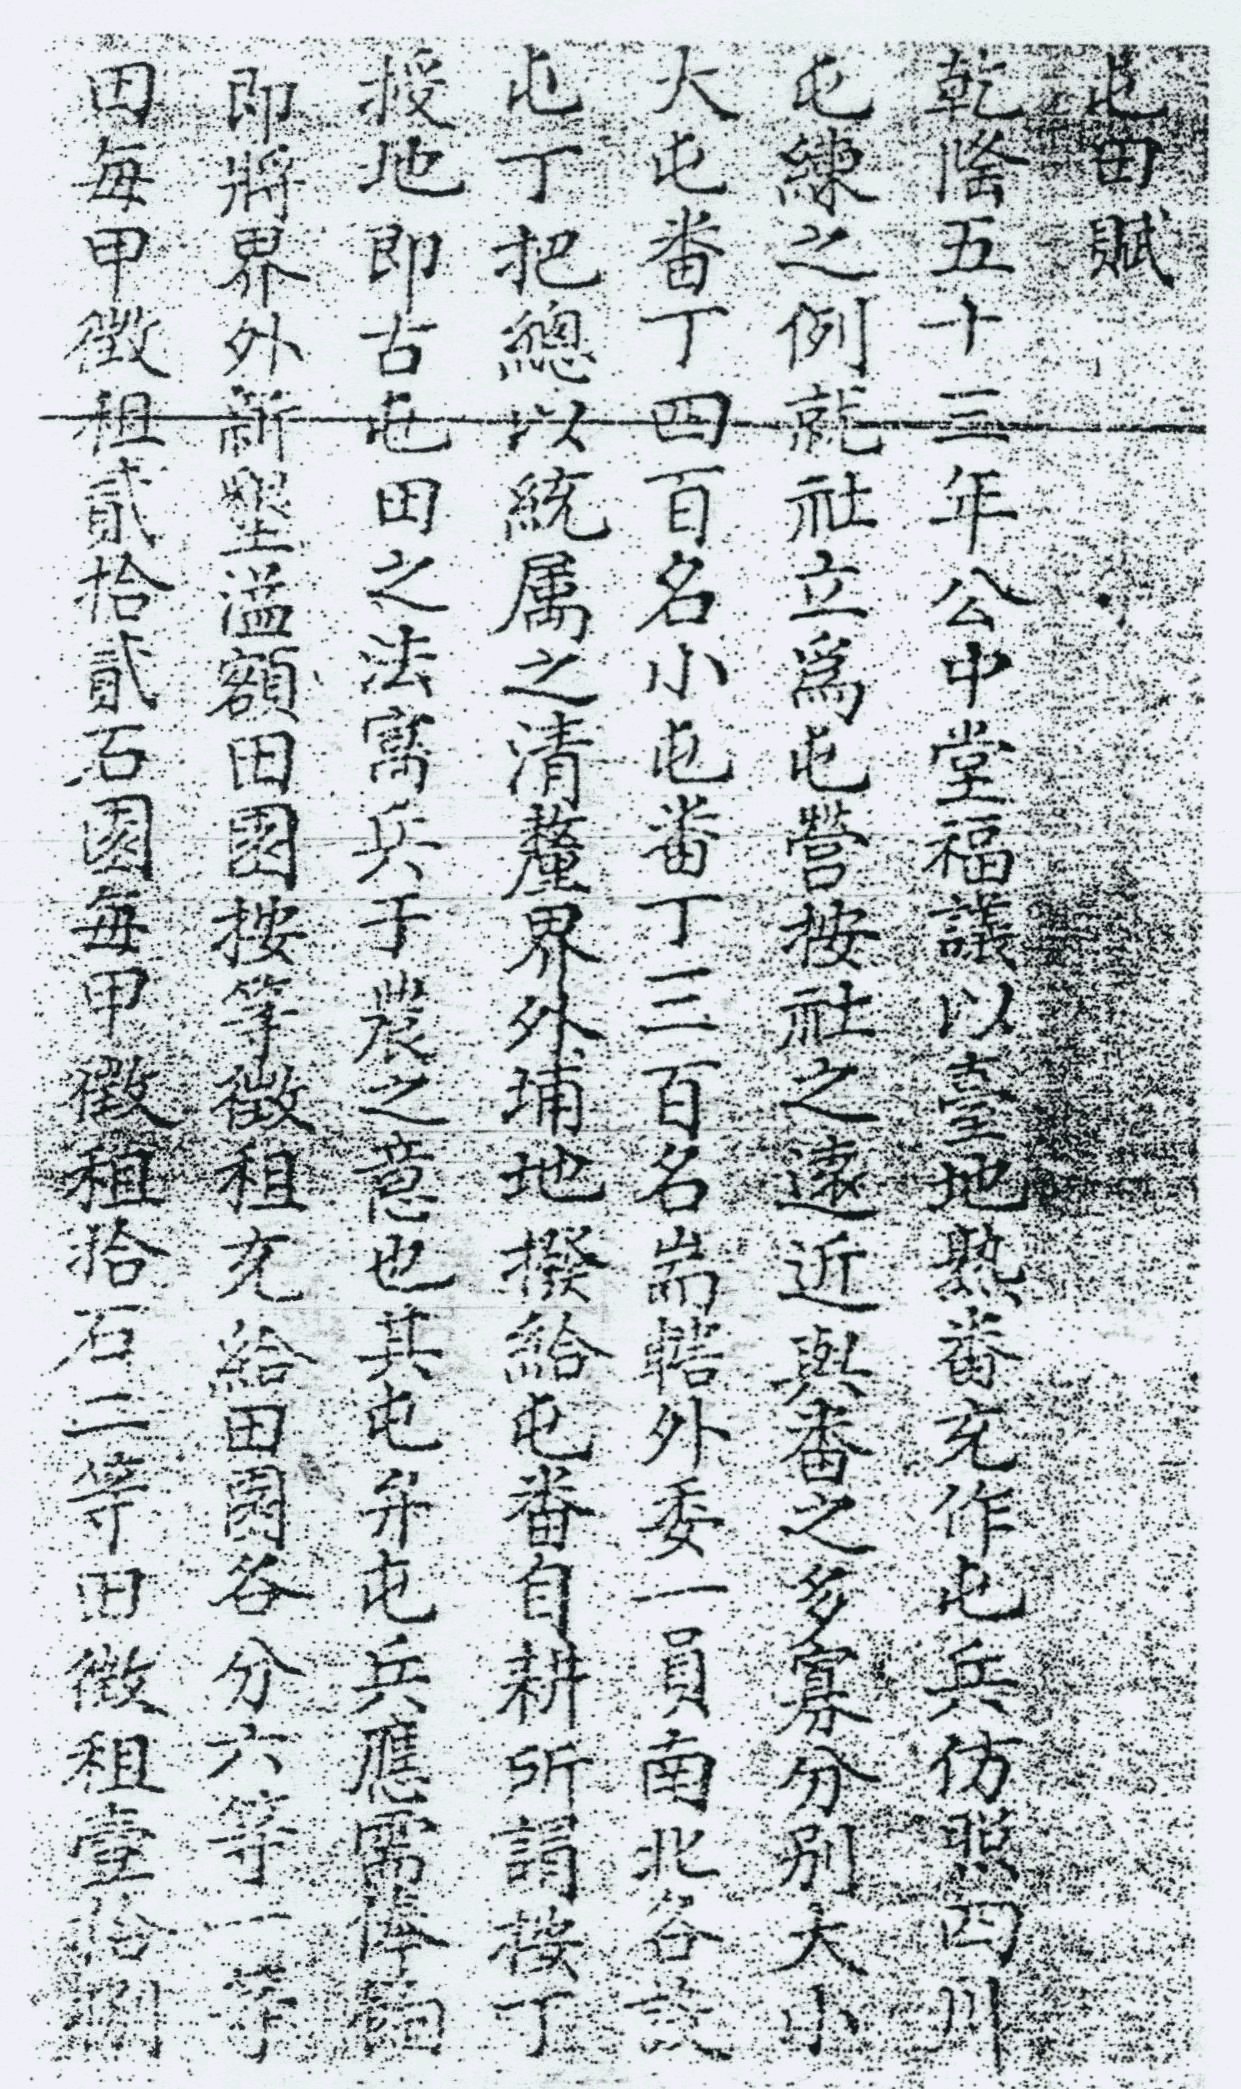 屯田賦
乾隆五十三年公中堂福議以臺地熟番充作屯兵仿照四川
屯練之例就社立為屯營按社之遠近與番之多寡分別大小
大屯番丁四百名小屯番丁三百名耑轄外委一員南北各設
屯丁把總以統属之清釐界外埔地撥給屯番自耕所謂按丁
授地即古屯田之法寓兵于農之意也其屯弁屯兵應需俸餉
即將界外新墾溢額田園按等徵租充給田園各分六等一等
田每甲徵租貳拾貳石園每甲徵租拾石二等田徵租壹拾捌